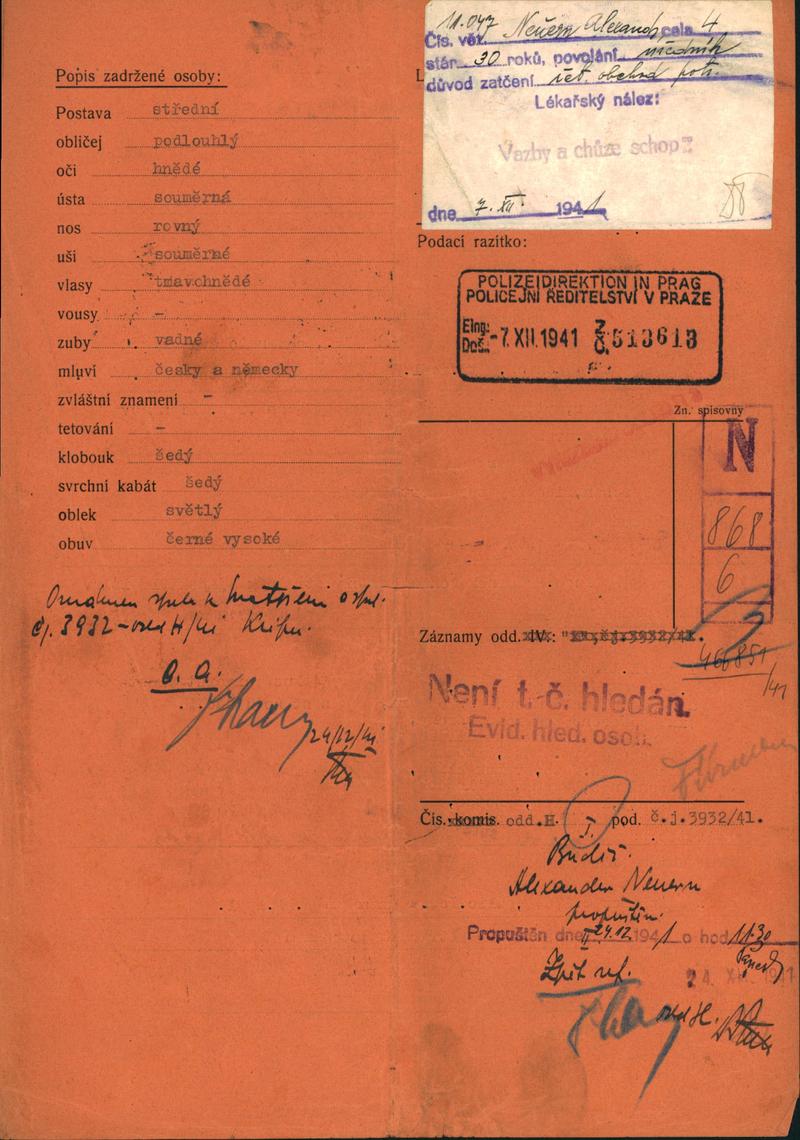 Popis zadržené osoby:
Postava střední
obličej podlouhlý
oči hnědé
ústa souměrná
nos rovný
uši souměrné
vlasy tmavohnědé
vousy -
zuby vadné
mluví česky a německy
zvláštní znamení -
tetování -
klobouk šedý
svrchní kabát šedý
oblek světlý
obuv černé vysoké
čj. 3932-odd H/41 Kripo.
24/12/41
11.047
Čís. věz. Neuern Alexand cela 4
stár 30 roků, povolání úředník
důvod zatčení řet. obchod potr.
Lékařský nález:
Vazby a chůze schop
dne 7. XII. 1941
Podací razítko:
POLIZEIDIREKTION IN PRAG
POLICEJNÍ ŘEDITELSTVÍ V PRAZE
Eing:
Doš.: -7. XII. 1941 Z Č. 513613
Zn. spisovny
N
868
6
Záznamy odd. IV.: č.j.3932/41.
466851/41
Není t. č. hledán.
Evid. hled. osob.
Čís. komis. odd.H. I. pod. č.j.3932/41.
Budiž
Alexander Neuern
propuštěn.
Propuštěn dne 24.12. 1941 o hod 11.30
Zpět ref.
24. XII. 1941
odd H.